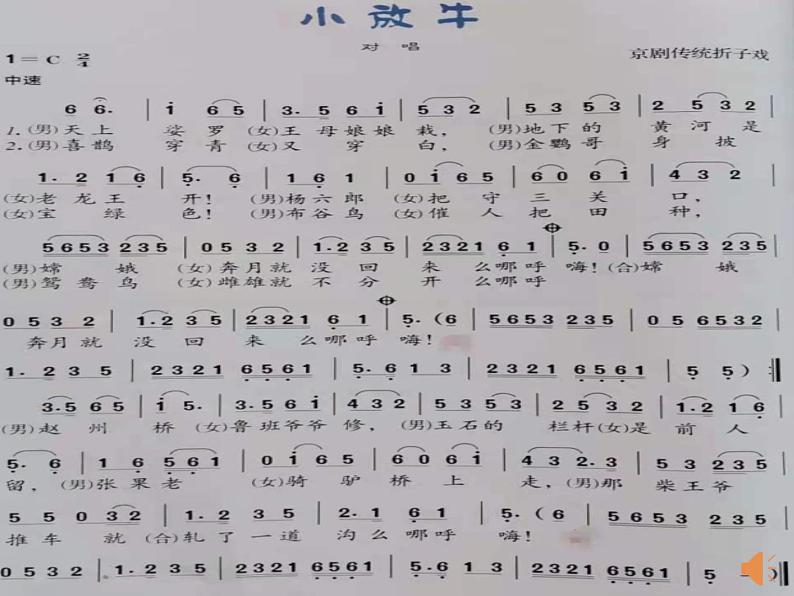 小放牛
对 唱
1=C 2/4
京剧传统折子戏
中速
6 6. | i 65 | 3. 5 6 i | 5 3 2 | 5 3 5 3 | 2 5 3 2
1.(男)天上 娑 罗 (女)王 母娘娘 栽, (男)地下的 黄 河 是
2.(男)喜鹊 穿 青 (女)又 穿 白, (男)金鹦哥 身 披
1. 2 1 6 | 5. 6 | 1 6 1 | 0 i 6 5 | 6 0 6 i | 4 3 2
(女)老 龙 王 开! (男)杨六郎 (女)把 守 三 关 口,
(女)宝 绿 色! (男)布谷鸟 (女)催 人 把 田 种,
5653 235 | 0 5 3 2 | 1.2 3 5 | 2321 6 1 | 5. 0 | 5653 235
(男)嫦 娥 (女)奔月就 没 回 来 么哪呼 嗨!(合)嫦 娥
(男)鸳 鸯 鸟 (女)雌雄就 不 分 开 么哪呼
0 5 3 2 | 1.2 3 5 | 2321 6 1 | 5. (6 | 5653 2355 | 05 6532
奔月就 没 回 来 么哪呼 嗨!
1. 2 3 5 | 2321 6561 | 5. 6 1 3 | 2321 6561 | 5 5 ) :‖
3.5 65 | i 5. | 3.5 6 i | 4 3 2 | 5 3 5 3 | 2 5 3 2 | 1.2 1 6
(男)赵 州 桥 (女)鲁班爷爷 修, (男)玉石的 栏杆(女)是 前 人
5. 6 | 1 6 5 6 1 | 0 i 6 5 | 6 0 6 i | 4 3 2. 3 | 5653 235
留, (男)张 果 老 (女)骑 驴 桥 上 走, (男)那 柴 王 爷
5 5 0 32 | 1. 2 3 5 | 2. 1 6 1 | 5. (6 | 5653 2355
推 车 就 (合)轧 了 一 道 沟 么 哪呼 嗨!
0 5 3 2 | 1. 2 3 5 | 2321 6561 | 5. 6 1 3 | 2321 6561 | 5 -) ‖